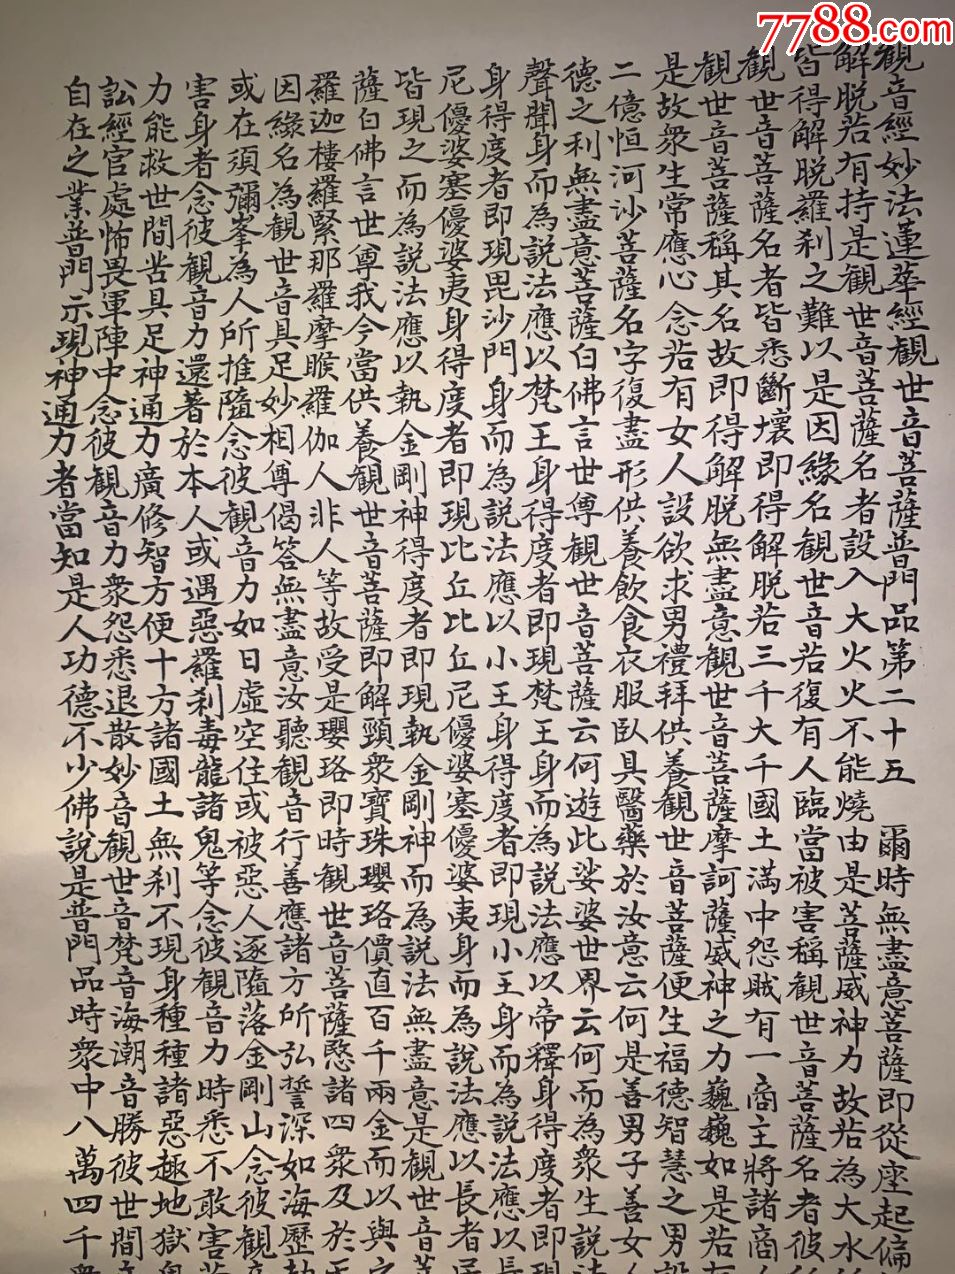 7788.com
観音經妙法蓮華經観世音菩薩普門品第二十五 爾時無盡意菩薩即從座起偏
解脱若有持是観世音菩薩名者設入大火火不能燒由是菩薩威神力故若為大水
皆得解脱羅刹之難以是因緣名観世音若復有人臨當被害稱観世音菩薩名者彼
観世音菩薩名者皆悉斷壞即得解脱若三千大千國土滿中怨賊有一商主將諸商
観世音菩薩稱其名故即得解脱無盡意観世音菩薩摩訶薩威神之力巍巍如是若有
是故衆生常應心念若有女人設欲求男禮拜供養観世音菩薩便生福德智慧之男設
二億恒河沙菩薩名字復盡形供養飲食衣服臥具醫藥於汝意云何是善男子善女
德之利無盡意菩薩白佛言世尊観世音菩薩云何遊此娑婆世界云何而為衆生説法
聲聞身而為説法應以梵王身得度者即現梵王身而為説法應以帝釋身得度者即現
身得度者即現毘沙門身而為説法應以小王身得度者即現小王身而為説法應以長
尼優婆塞優婆夷身得度者即現比丘比丘尼優婆塞優婆夷身而為説法應以長者居
皆現之而為説法應以執金剛神得度者即現執金剛神而為説法無盡意是観世音菩
薩白佛言世尊我今當供養観世音菩薩即解頸衆寶珠瓔珞價直百千兩金而以與之
羅迦樓羅緊那羅摩睺羅伽人非人等故受是瓔珞即時観世音菩薩愍諸四衆及於天
因緣名為観世音具足妙相尊偈答無盡意汝聽観音行善應諸方所弘誓深如海歷劫
或在須彌峯為人所推隨念彼観音力如日虛空住或被惡人逐隨落金剛山念彼観
害身者念彼観音力還著於本人或遇惡羅刹毒龍諸鬼等念彼観音力時悉不敢害若
力能救世間苦具足神通力廣修智方便十方諸國土無刹不現身種種諸惡趣地獄鬼
訟經官處怖畏軍陣中念彼観音力衆怨悉退散妙音観世音梵音海潮音勝彼世間音
自在之業普門示現神通力者當知是人功德不少佛説是普門品時衆中八萬四千衆